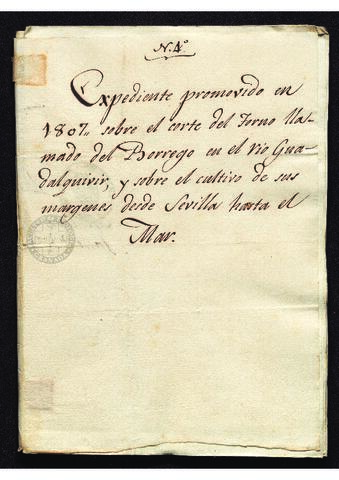 N. 4°
Expediente promovido en
1807,, sobre el corte del Torno lla-
mado del Borrego en el rio Gua-
dalquivir, y sobre el cultivo de sus
margenes desde Sevilla hasta el
Mar.